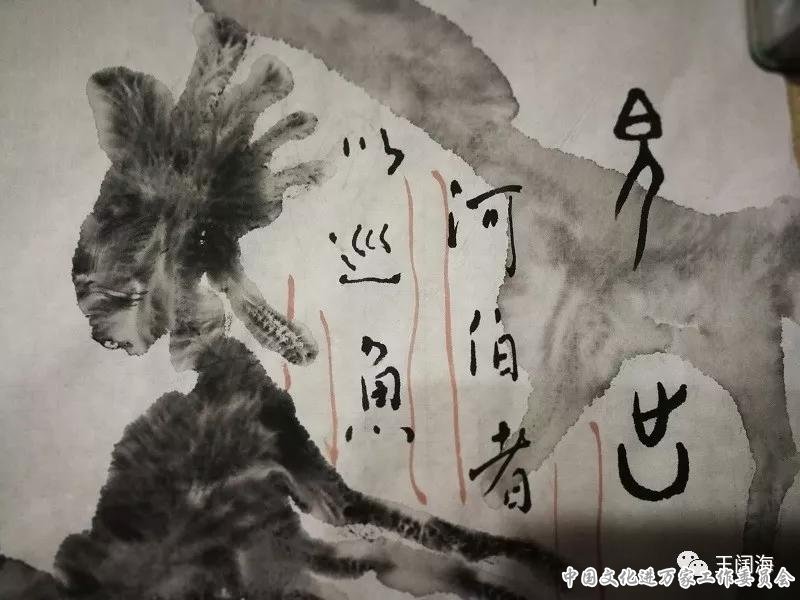 河伯者
以巡魚
王阔海
中国文化进万家工作委员会